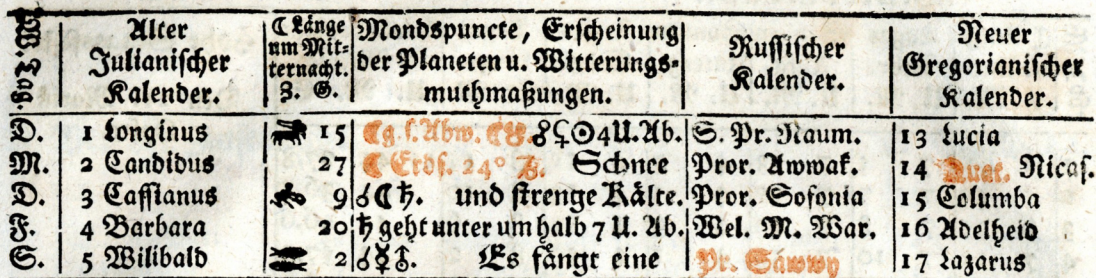 W. T. W. Alter Julianischer Kalender. ☾ Länge um Mitternacht. Z. G. Mondspuncte, Erscheinung der Planeten u. Witterungsmuthmaßungen. Russischer Kalender. Neuer Gregorianischer Kalender.
D. 1 Longinus 15 ☾ g. s. Abw. ☾☋. ☍♀☉ 4 U. Ab. S. Pr. Naum. 13 Lucia
M. 2 Candidus 27 ☾ Erdf. 24° ♑. Schnee Pror. Awwak. 14 Quat. Nicas.
D. 3 Cassianus 9 ☌☾♄. und strenge Kälte. Pror. Sofonia 15 Columba
F. 4 Barbara 20 ♄ geht unter um halb 7 U. Ab. Wel. M. War. 16 Adelheid
S. 5 Wilibald 2 ☌☿♁. Es fängt eine Pr. Säwwy 17 Lazarus